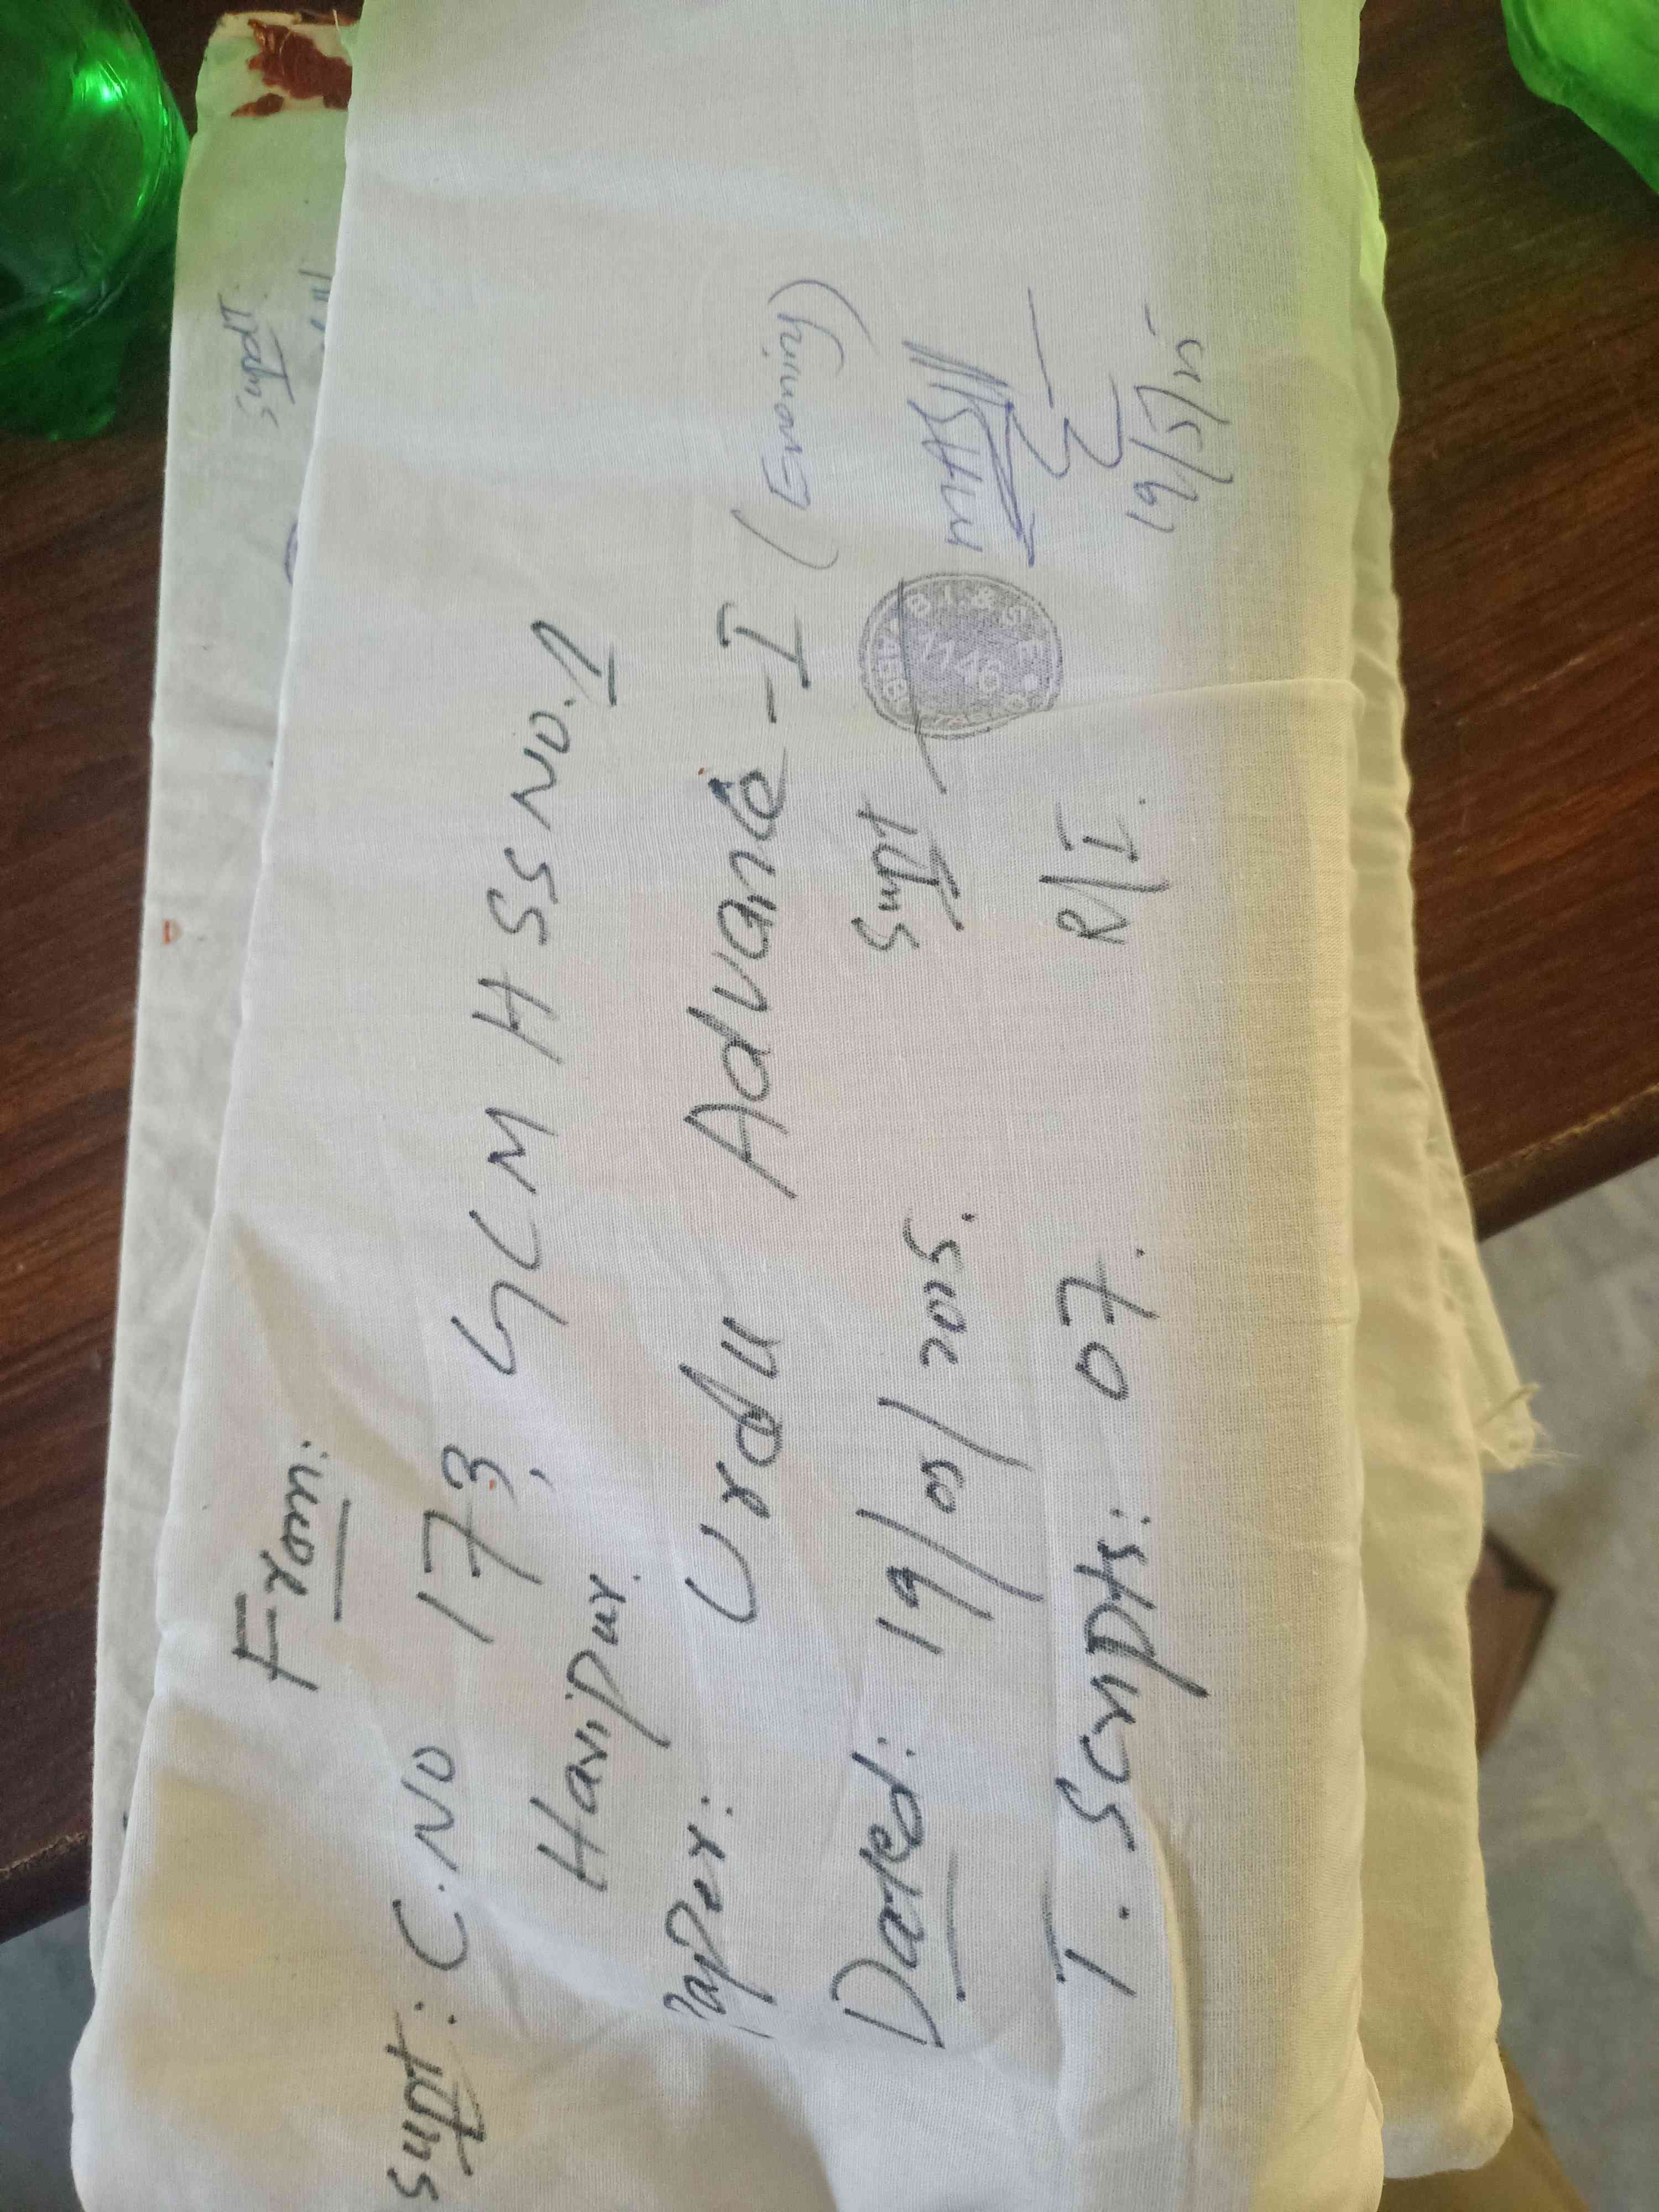 From:
Supdt: C.No 173, GCMHSS No.1
Haripur.
Paper: Urdu Advance-I (Evening)
Dated: 19/05/2025. Supdt
B.I.&S.E
1146
T. Scripts: 07. R/I.
19/5/25
Supdt